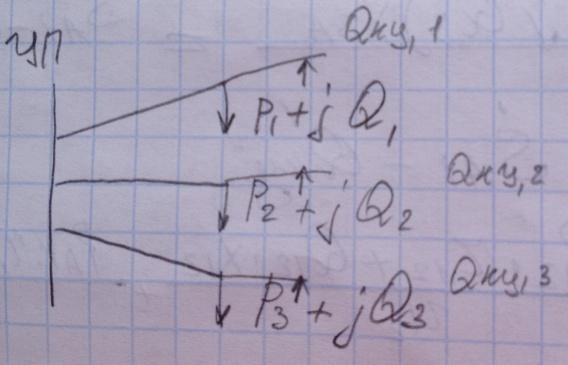 ЦП
Qку,1
P₁ + j Q₁
Qку,2
P₂ + j Q₂
Qку,3
P₃ + jQ₃